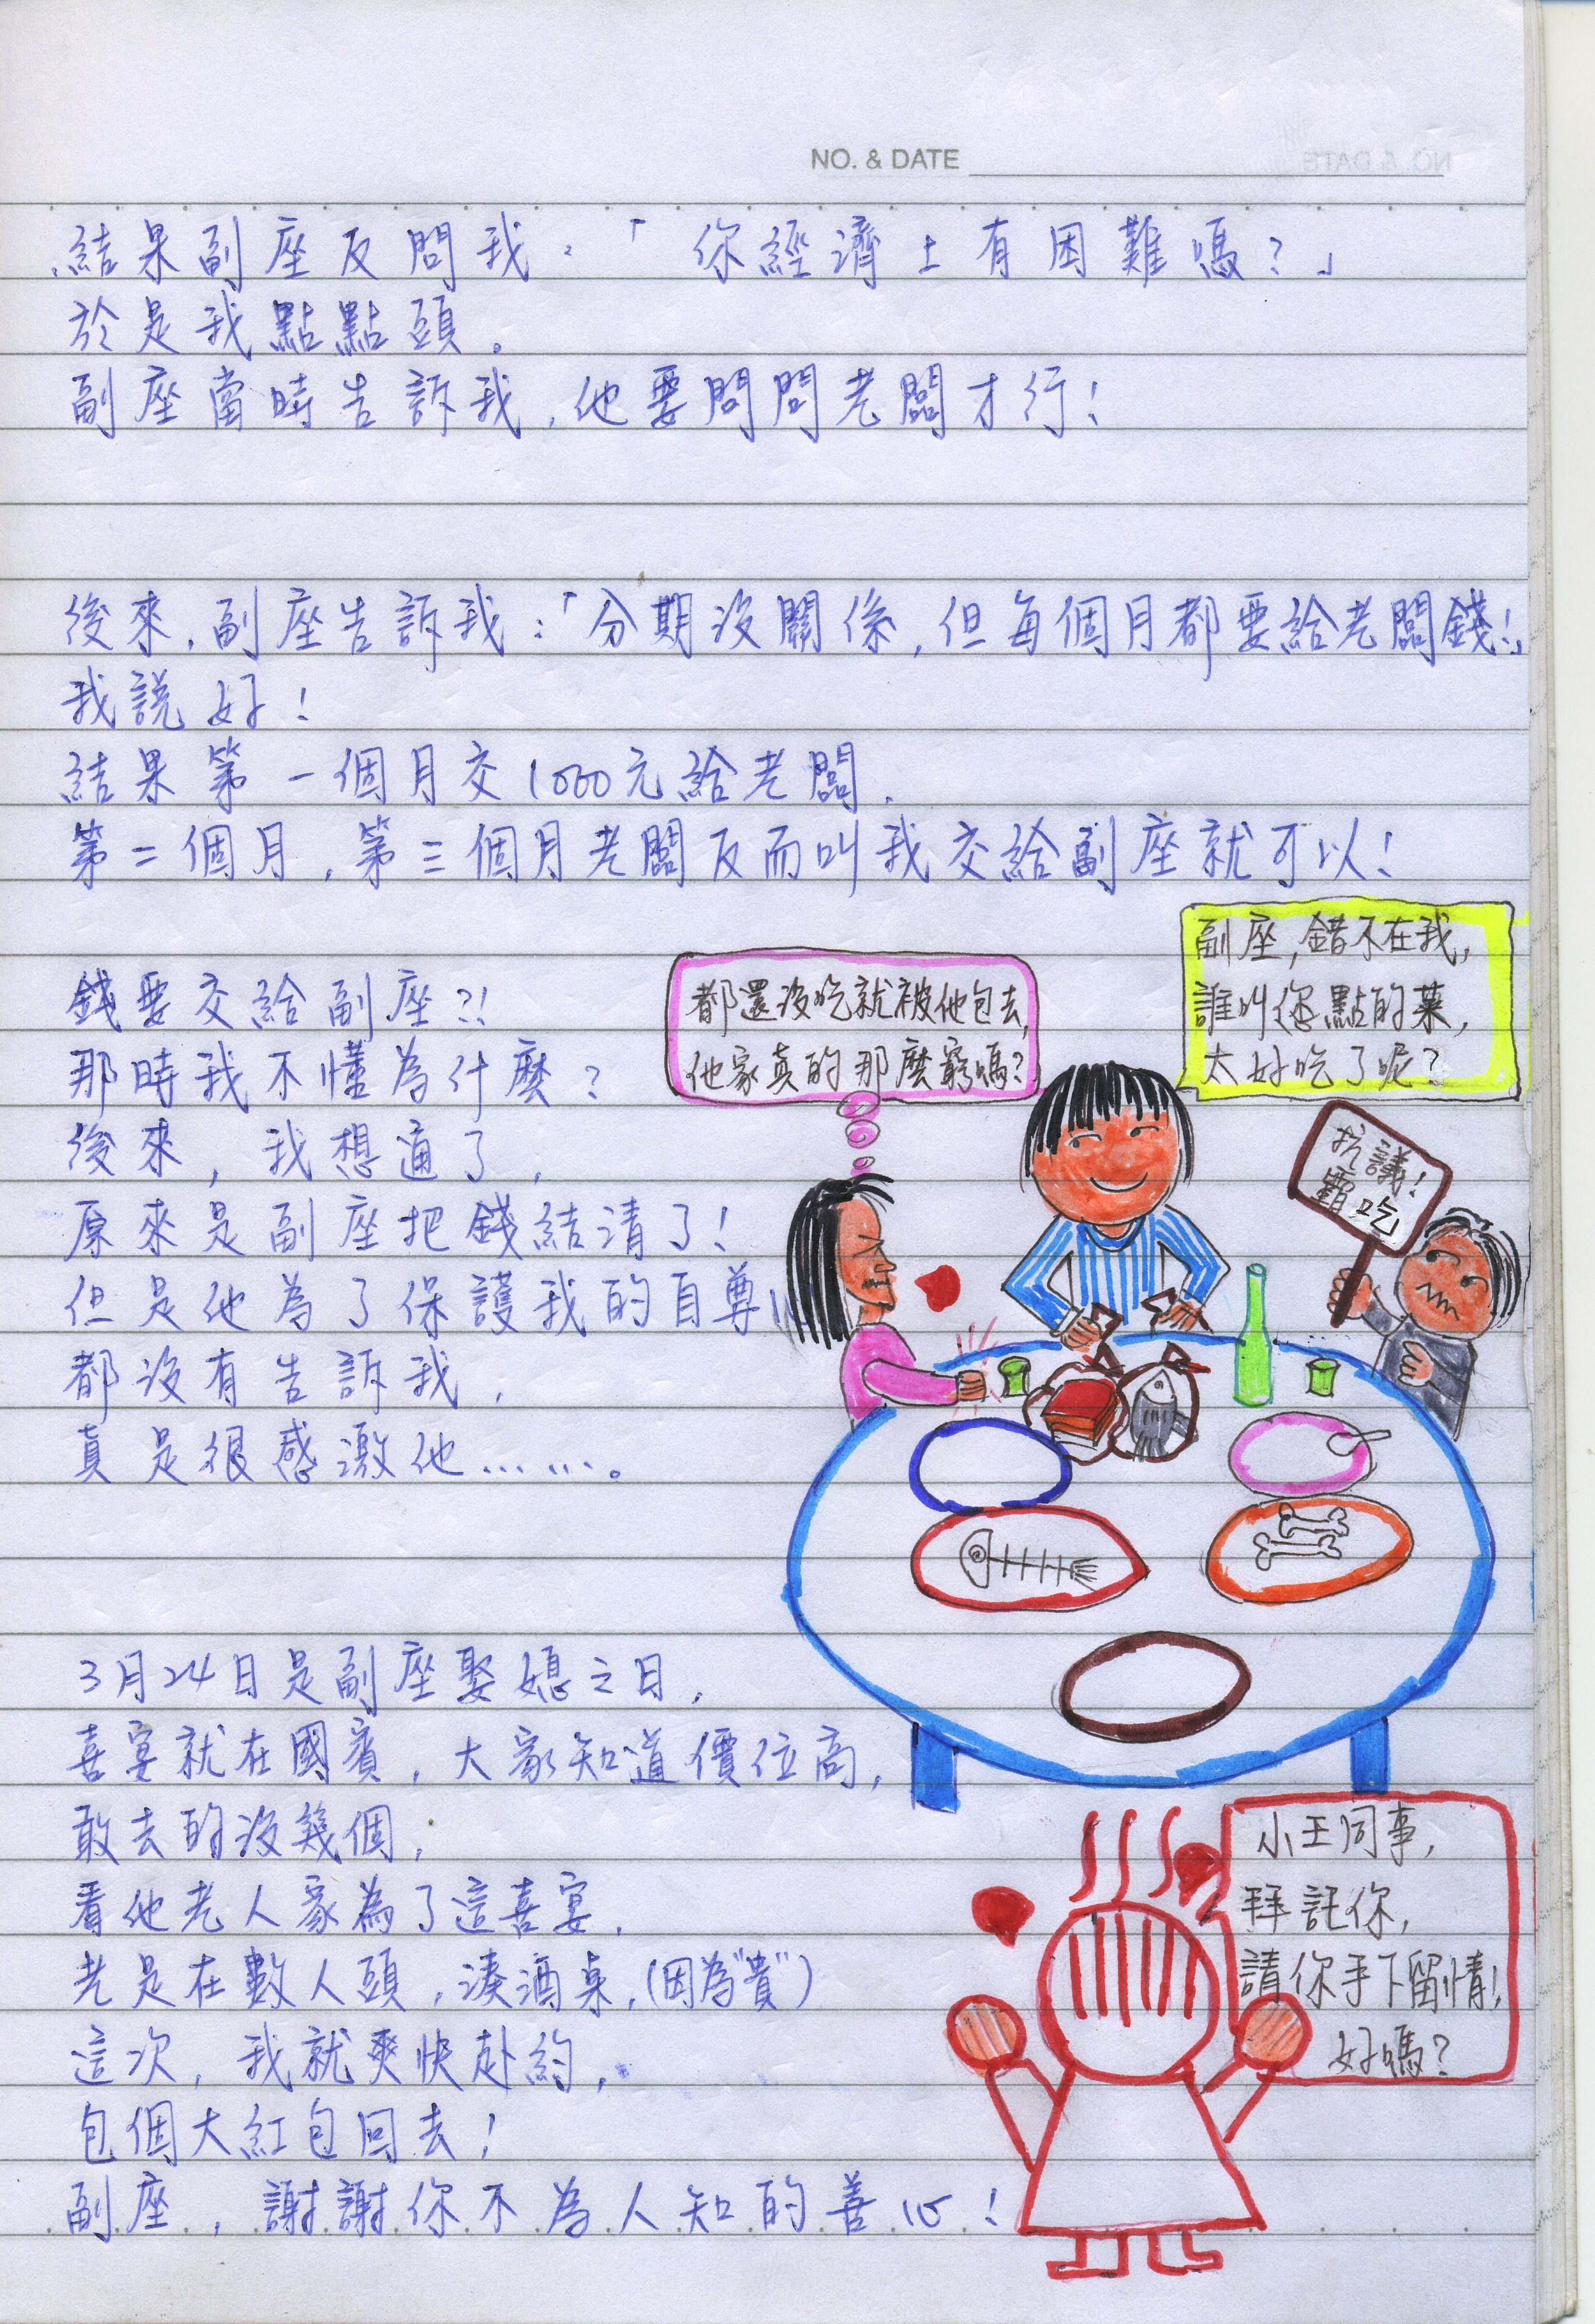 NO. & DATE
結果副座反問我:「你經濟上有困難嗎?」
於是我點點頭。
副座當時告訴我,他要問問老闆才行!
後來,副座告訴我:「分期沒關係,但每個月都要給老闆錢!」
我說好!
結果第一個月交1000元給老闆,
第二個月,第三個月老闆反而叫我交給副座就可以!
錢要交給副座?!
那時我不懂為什麼?
後來,我想通了,
原來是副座把錢結清了!
但是他為了保護我的自尊心,
都沒有告訴我,
真是很感激他……。
都還沒吃就被他包去,
他家真的那麼窮嗎?
副座,錯不在我,
誰叫您點的菜,
太好吃了呢?
抗議!
霸吃
3月24日是副座娶媳之日,
喜宴就在國賓,大家知道價位高,
敢去的沒幾個,
看他老人家為了這喜宴,
老是在數人頭,湊酒桌,(因為"貴")
這次,我就爽快赴約,
包個大紅包回去!
副座,謝謝你不為人知的善心!
小王同事,
拜託你,
請你手下留情!
好嗎?